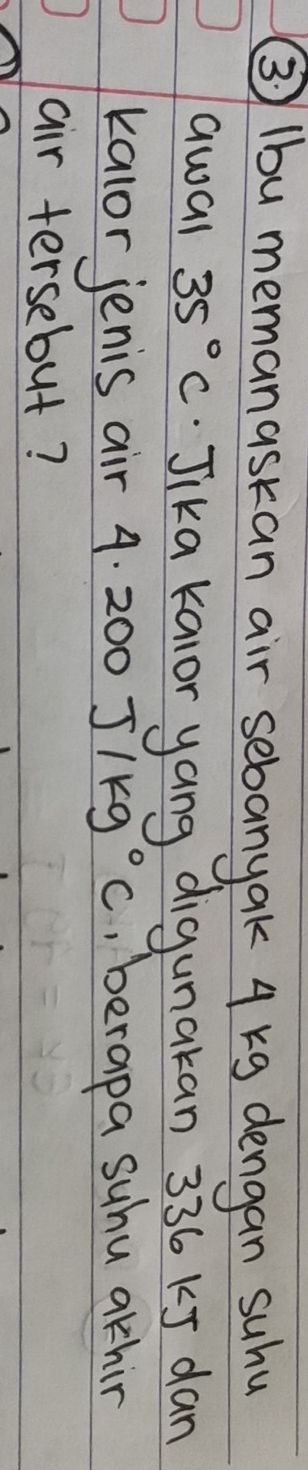 3. Ibu memanaskan air sebanyak 4 kg dengan suhu
awal 35°C. Jika kalor yang digunakan 336 KJ dan
kalor jenis air 4.200 J/kg°C, berapa suhu akhir
air tersebut?